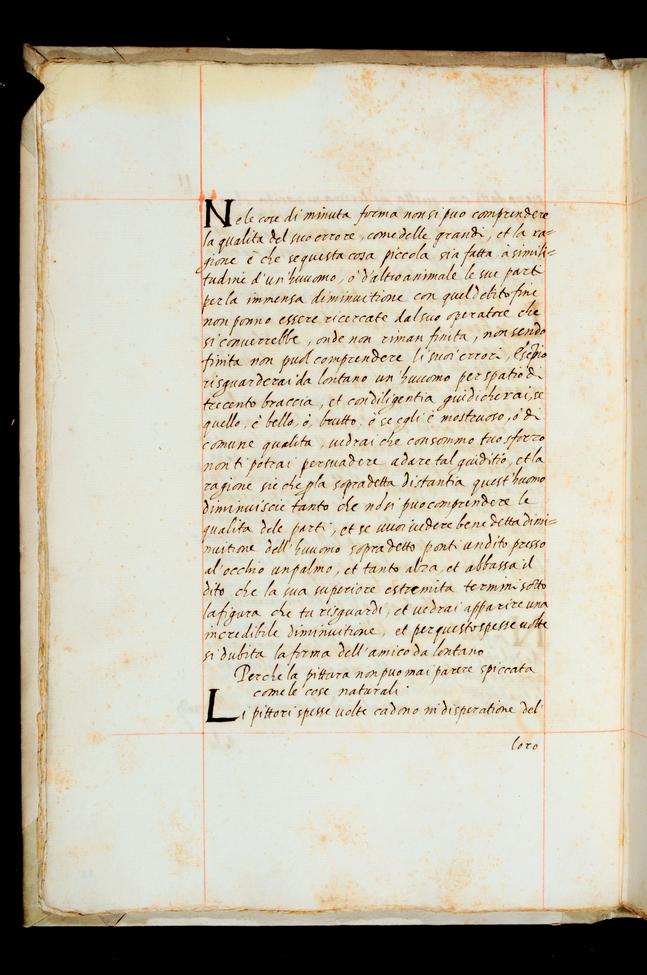 Nele cose di minuta forma non si puo comprendere
la qualita del suo errore, come delle grandi, et la ra=
gione è che se questa cosa piccola sia fatta à simili=
tudine d'un' huuomo, o d'altro animale le sue parti
per la immensa diminuitione con quel debito fine
non ponno essere ricercate dal suo operatore che
si converrebbe, onde non riman finita, non sendo
finita non puoi comprendere li suoi errori,
risguarderai da lontano un' huuomo per spatio di
trecento braccia, et con diligentia giudicherai, se
quello, è bello, ò, brutto, ò se egli è mostruoso, ò di
comune qualita, uedrai che con sommo tuo sforzo
non ti potrai persuadere a dare tal guiditio, et la
ragione sie che p la sopradetta distantia quest' huomo
diminuiscie tanto che nō si puo comprendere le
qualita dele parti, et se uuoi uedere bene detta dimi=
nuitione dell' huuomo sopradetto ponti un dito presso
al' occhio un palmo, et tanto alza, et abbassa il
dito che la sua superiore estremita termini sotto
la figura che tu risguardi, et uedrai apparire una
incredibile diminuitione, et per questo spesse uolte
si dubita la forma dell' amico da lontano
Perche la pittura non puo mai parere spiccata
come le cose naturali.
Li pittori spesse uolte cadono in disperatione del
loro